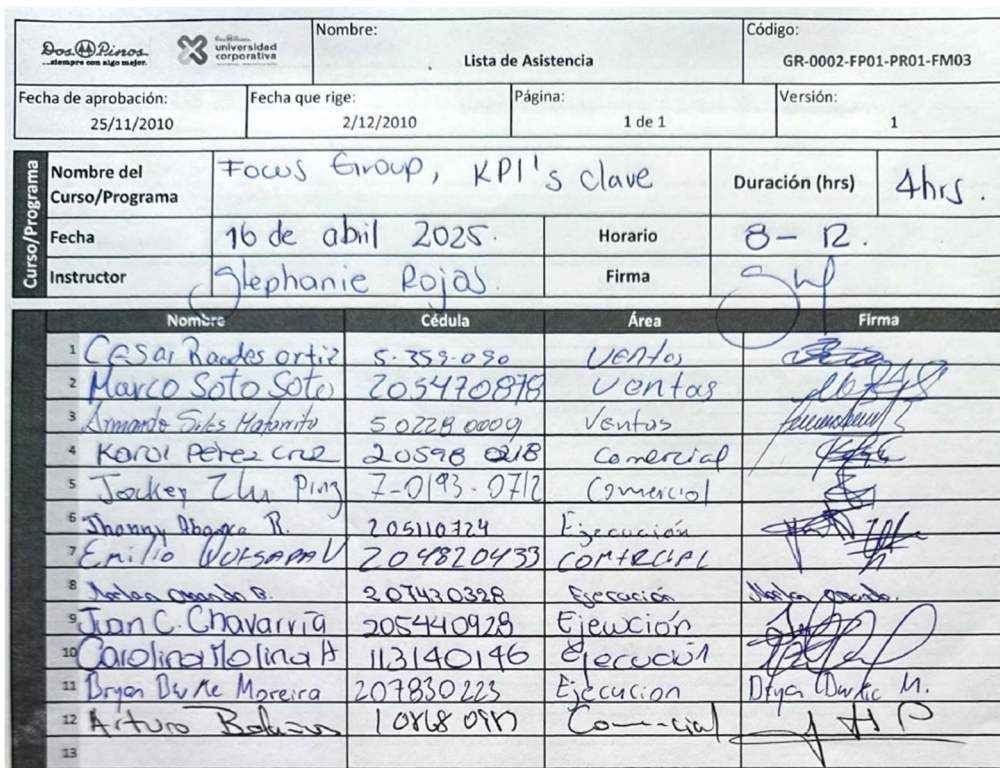 Dos Pinos
...siempre con algo mejor.
universidad
corporativa
Nombre:
Lista de Asistencia
Código:
GR-0002-FP01-PR01-FM03
Fecha de aprobación:
25/11/2010
Fecha que rige:
2/12/2010
Página:
1 de 1
Versión:
1
Curso/Programa
Nombre del
Curso/Programa
Focus Group, KPI's clave
Duración (hrs)
4hrs.
Fecha
16 de abil 2025.
Horario
8-12.
Instructor
Stephanie Rojas.
Firma
Nombre Cédula Área Firma
1 Ortiz 5-359-090 Ventas
2 Marco Soto Soto 205470878 Ventas
3 Armando 502280009 Ventas
4 Karol Pérez Cruz 20598 0218 Comercial
5 Ping 7-0193-0712 Comercial
6 Jhonny R. 205110724 Ejecución
7 Emilio 204820433 COMERCIAL
8 207430328 Ejecución
9 Juan C. Chavarría 205440928 Ejecución
10 Carolina Molina A 113140146 Ejecución
11 Bryan Moreira 207830223 Ejecucion
12 Arturo Comercial
13